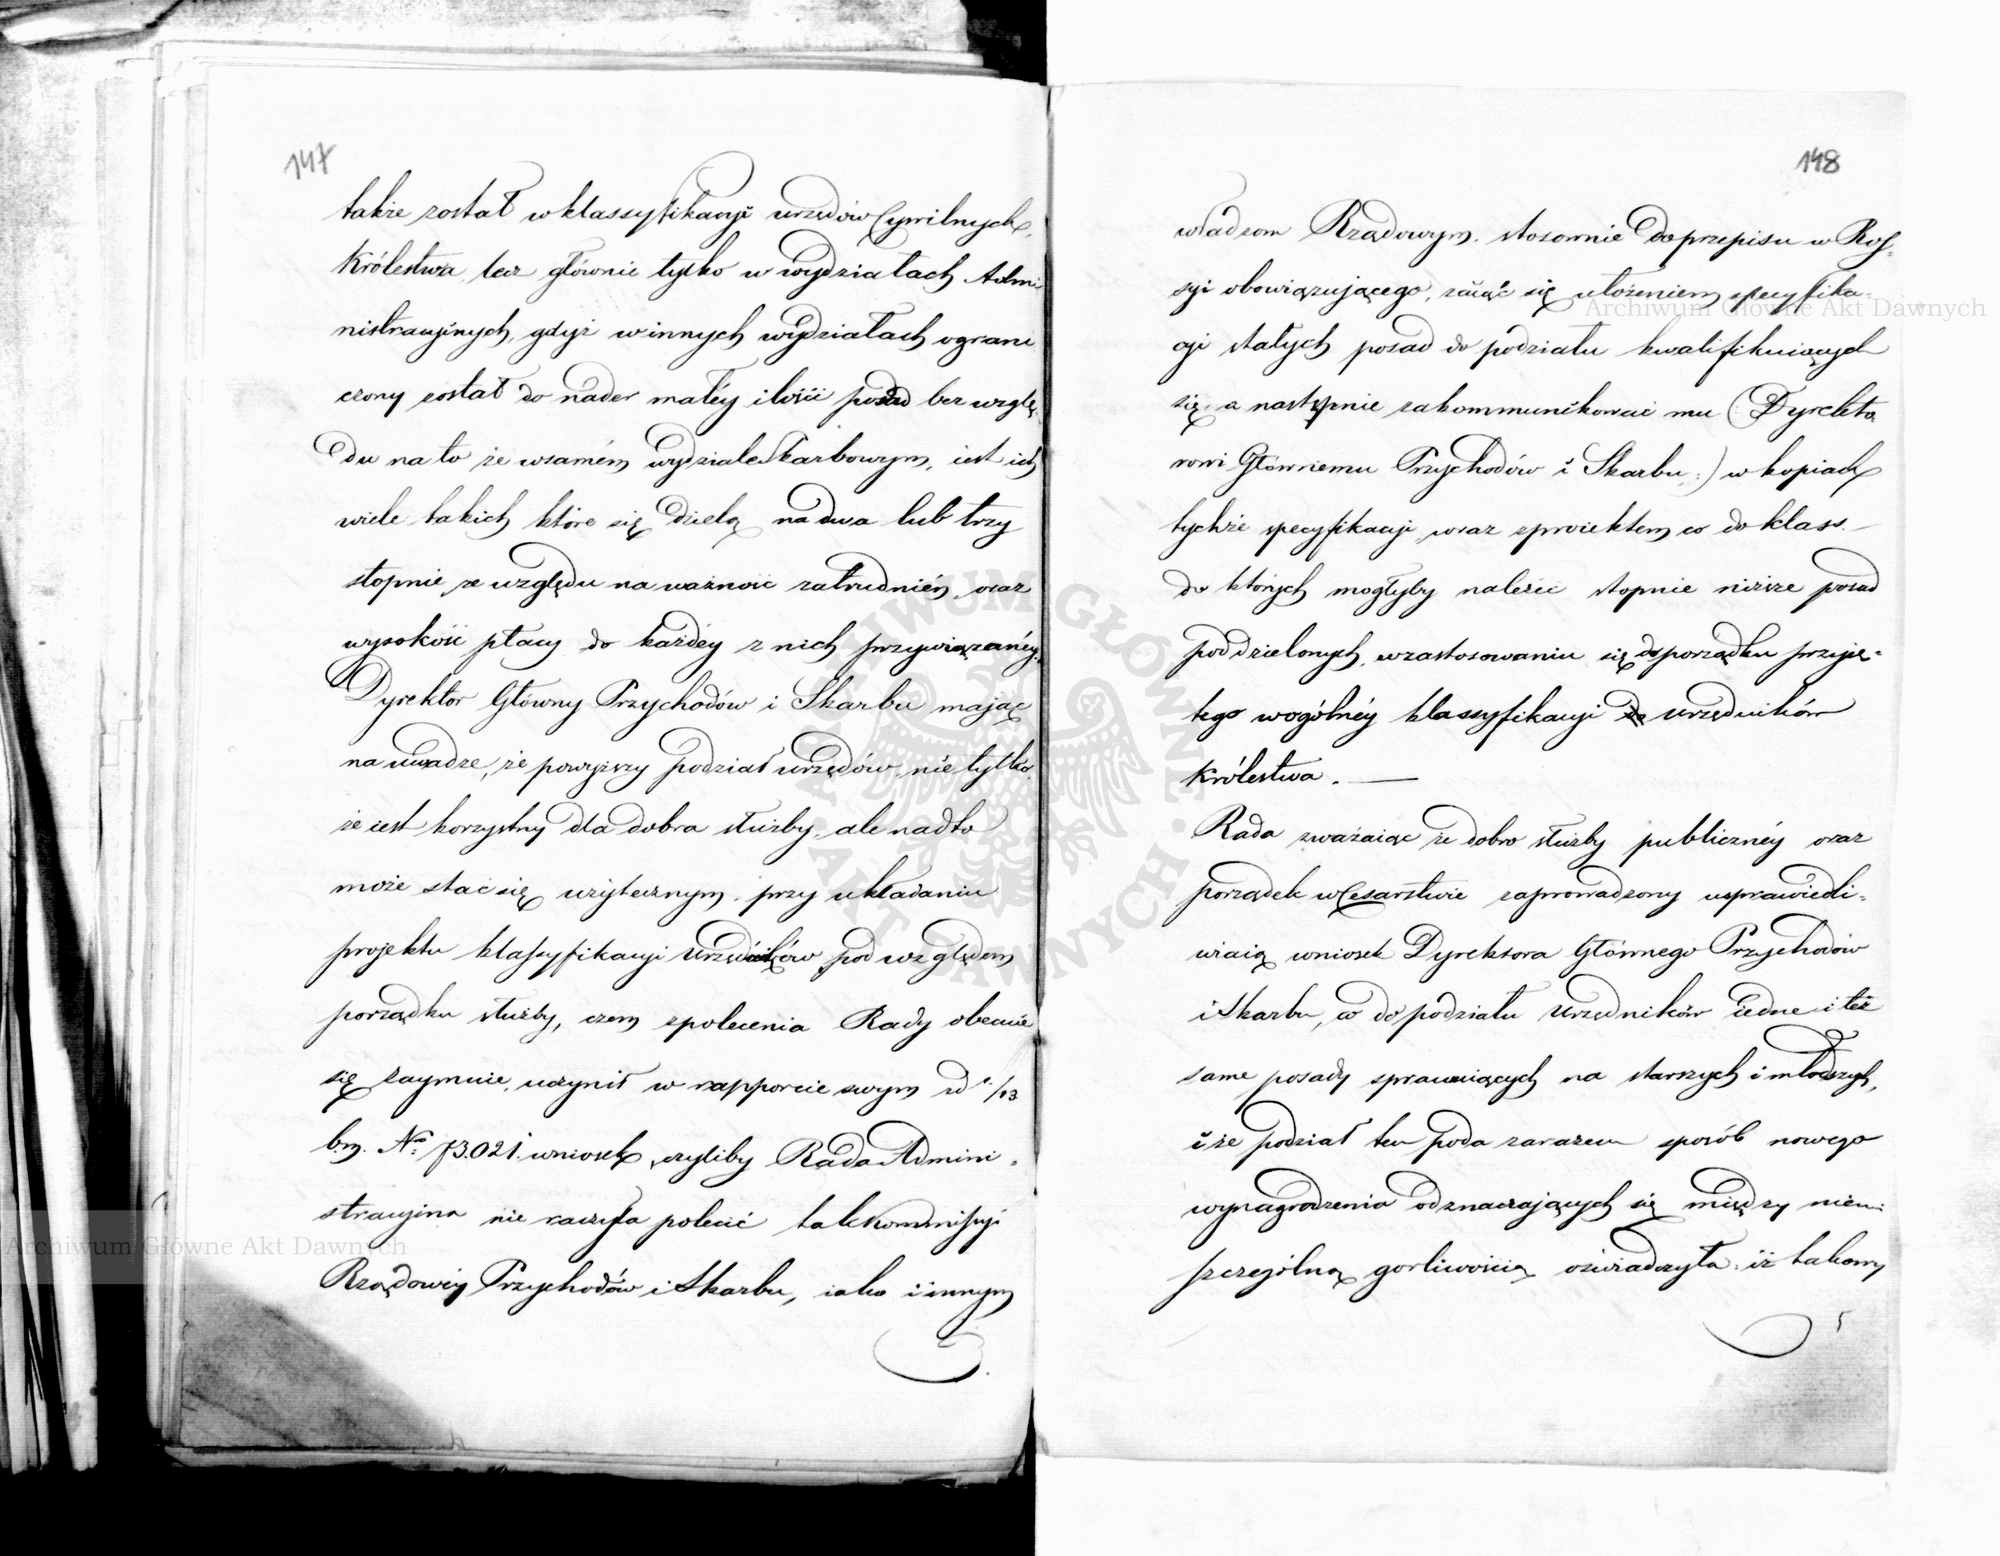 147
także został w klassyfikacyi urzędów Cywilnych
Królestwa, lecz głównie tylko w wydziałach Admi
nistracyinych, gdyż w innych wydziałach ograni
czony został do nader małéy ilości posad bez wzglę,
du na to że w samém wydziale Skarbowym, iest ich
wiele takich które się dzielą na dwa lub trzy
stopnie, ze względu na ważność zatrudnień, oraz
wysokość płacy do każdéy z nich przywiązanéy.
Dyrektor Główny Przychodów i Skarbu maiąc
na uwadze, że powyższy podział urzędów, nie tylko
że iest korzystny dla dobra służby, ale nadto
może stać się użytecznym, przy układaniu
projektu klassyfikacyi urzędników pod względem
porządku służby, czem z polecenia Rady obecnie
się zaymuie, uczynił w rapporcie swym d 1/13
b.m. No 73.021. wniosek, czyliby Rada Admini,
stracyina nie raczyła polecić tak Kommissyi
Rządowéy Przychodów i Skarbu, iako i innym
148
władzom Rządowym, stosownie do przepisu w Ros,
syi obowiązuiącego, zaiąć się ułożeniem specyfika,
cyi stałych posad do podziału kwalifikuiących
się, a następnie zakommunikować mu (: Dyrekto
rowi Głównemu Przychodów i Skarbu :) w kopiach
tychże specyfikacyi, wraz z proiektem co do klass.
do których mogłyby należeć stopnie niższe posad
poddzielonych, w zastosowaniu się do porządku przyię=
tego w ogólnéy klassyfikacyi do urzędników
Królestwa. —
Rada zważaiąc że dobro służby publicznéy oraz
porządek w Cesarstwie zaprowadzony usprawiedli=
wiaią wniosek Dyrektora Głównego Przychodów
i Skarbu, co do podziału urzędników iedne i też
same posady sprawuiących na starszych i młodszych,
i że podział ten poda zarazem sposób nowego
wynagrodzenia odznaczających się między niemi
szczególną gorliwością, oświadczyła, iż takowy
Archiwum Główne Akt Dawnych
Archiwum Główne Akt Dawnych
ARCHIWUM GŁÓWNE AKT DAWNYCH